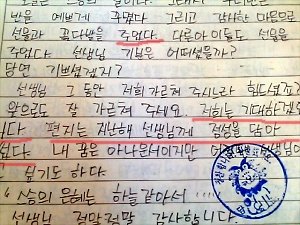 반을 예쁘게 꾸몄다 그리고 감사한 마음으로
선물과 꽃다발을 주었다. 다른아이들도 선물을
주었다. 선생님 기분은 어떠셨을까?
당연 기쁘셨겠지?
선생님 그 동안 저희 가르쳐 주시느라 힘드셨죠?
앞으로도 잘 가르쳐 주세요. 저희는 기대하겠
니다. 편지는 지난해 선생님께 정성을 담아
썼다. 내 꿈은 아나운서이지만 선생님이
싶기도 하다.
"스승의 은혜는 하늘같아서 ……
선생님 정말정말 감사합니다.